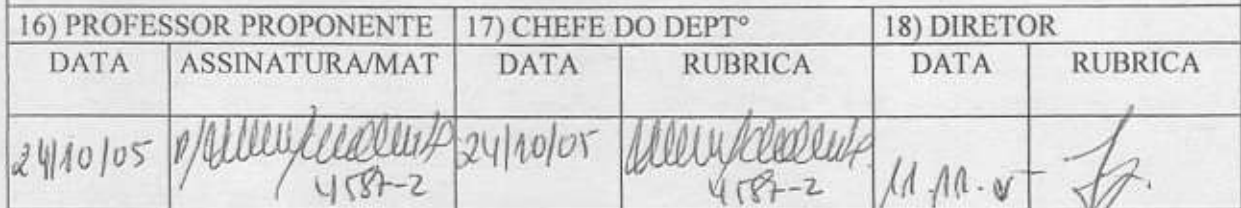 16) PROFESSOR PROPONENTE 17) CHEFE DO DEPTº 18) DIRETOR
DATA ASSINATURA/MAT DATA RUBRICA DATA RUBRICA
24/10/05 p/ 24/10/05 11.11.05
4587-2 4587-2